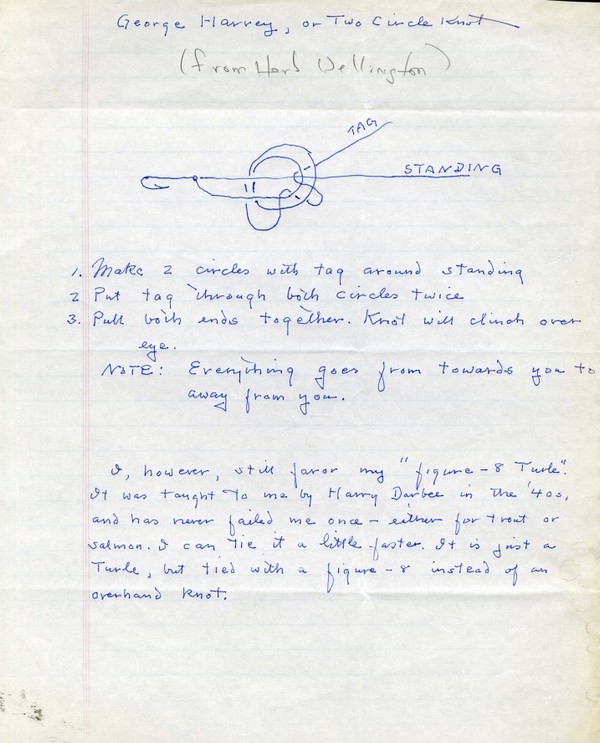 George Harvey, or Two Circle Knot
(from Herb Wellington)
TAG
STANDING
1. Make 2 circles with tag around standing
2 Put tag through both circles twice
3. Pull both ends together. Knot will clinch over
eye.
NOTE: Everything goes from towards you to
away from you.
I, however, still favor my "figure-8 Turle".
It was taught to me by Harry Darbee in the '40s,
and has never failed me once - either for trout or
salmon. I can tie it a little faster. It is just a
Turle, but tied with a figure-8 instead of an
overhand knot.